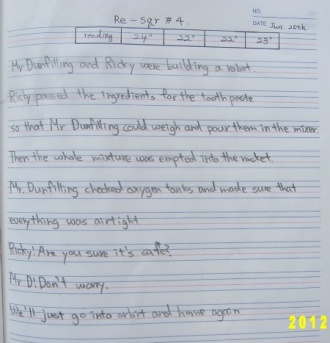 Re-Sqr #4.
NO.
DATE Jun. 20th
reading 24" 22" 22" 23"
Mr Dunfilling and Ricky were building a robot.
Ricky passed the ingredients for the tooth paste
so that Mr Dunfilling could weigh and pour them in the mixer.
Then the whole mixture was emptied into the rocket.
Mr. Dunfilling checked oxygen tanks and made sure that
everything was airtight
Ricky: Are you sure it's safe?
Mr D: Don't worry.
We'll just go into orbit and home again
2012